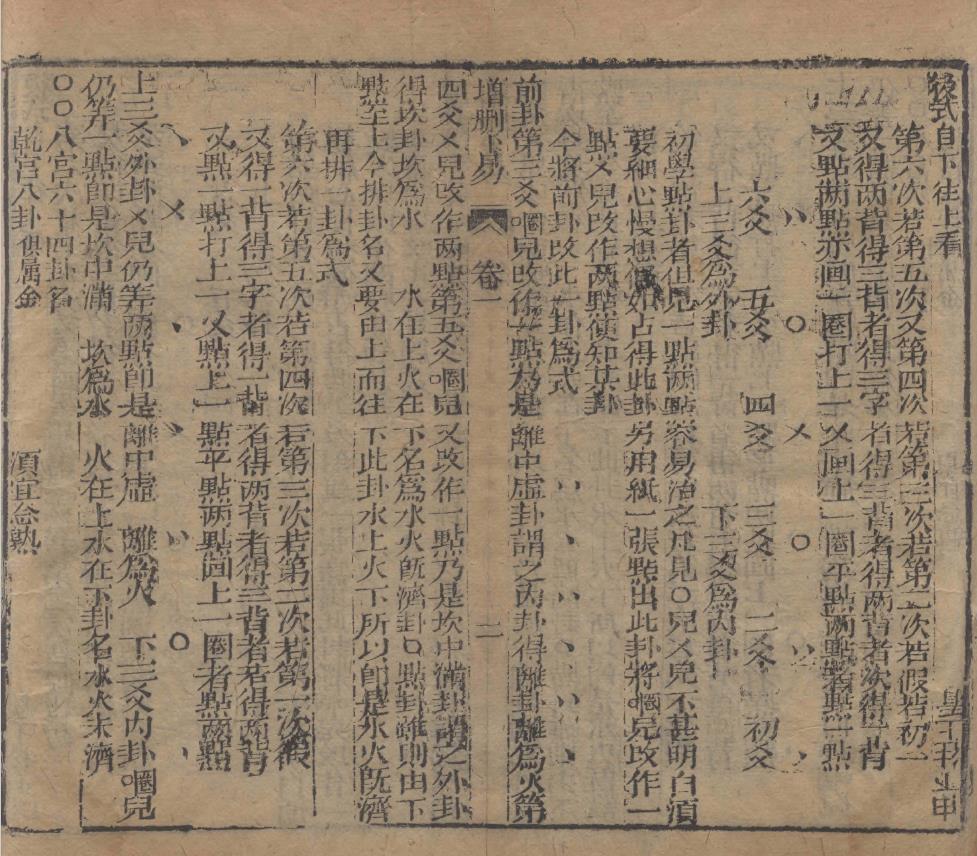 後式自下往上看
第六次若第五次又第四次若第三次若第二次若假若初一
又得两背得三背者得三字者得三背者得两背者次得一背
又點兩點亦画一圈打上一乂画上一圈平點兩點點一點
、、 ○ 乂 ○ 、、 、
六爻 五爻 四爻 三爻 二爻 初爻
上三爻為外卦 下三爻為内卦
初學點卦者但見一點兩點容易冶之凡見○兒乂兒不甚明白湏
要細心慢想假如占得此卦另用紙一張點出此卦將圈兒攺作一
點乂兒攺作两點便知某卦
今將前卦攺此一卦為式 、、 、 、、 、 、、 、
前卦第三爻圈兒攺作一點乃是離中虚卦謂之内卦得離卦離為火第
增删卜易 卷一 二
四爻乂兒攺作两點第五爻圈兒又改作一點乃是坎中滿卦謂之外卦
得坎卦坎為水 水在上火在下名為水火旣濟卦○點卦雖則由下
點至上今排卦名又要由上而往下此卦水上火下所以卽是水火旣濟
再排一卦為式
第六次若第五次若第四次若第三次若第二次若第一次假
又得一背得三字者得一背者得两背者得三背者若得两背
又點一點打上一乂點上一點平點两點画上一圈者點兩點
、 乂 、 、、 ○ 、、
上三爻外卦乂兒仍筭两點卽是離中虚 離為火 下三爻内卦圈兒
仍筭一點卽是坎中滿 坎為水 火在上水在下卦名水火未濟
○○八宮六十四卦名
乾宫八卦俱属金 湏宜念熟